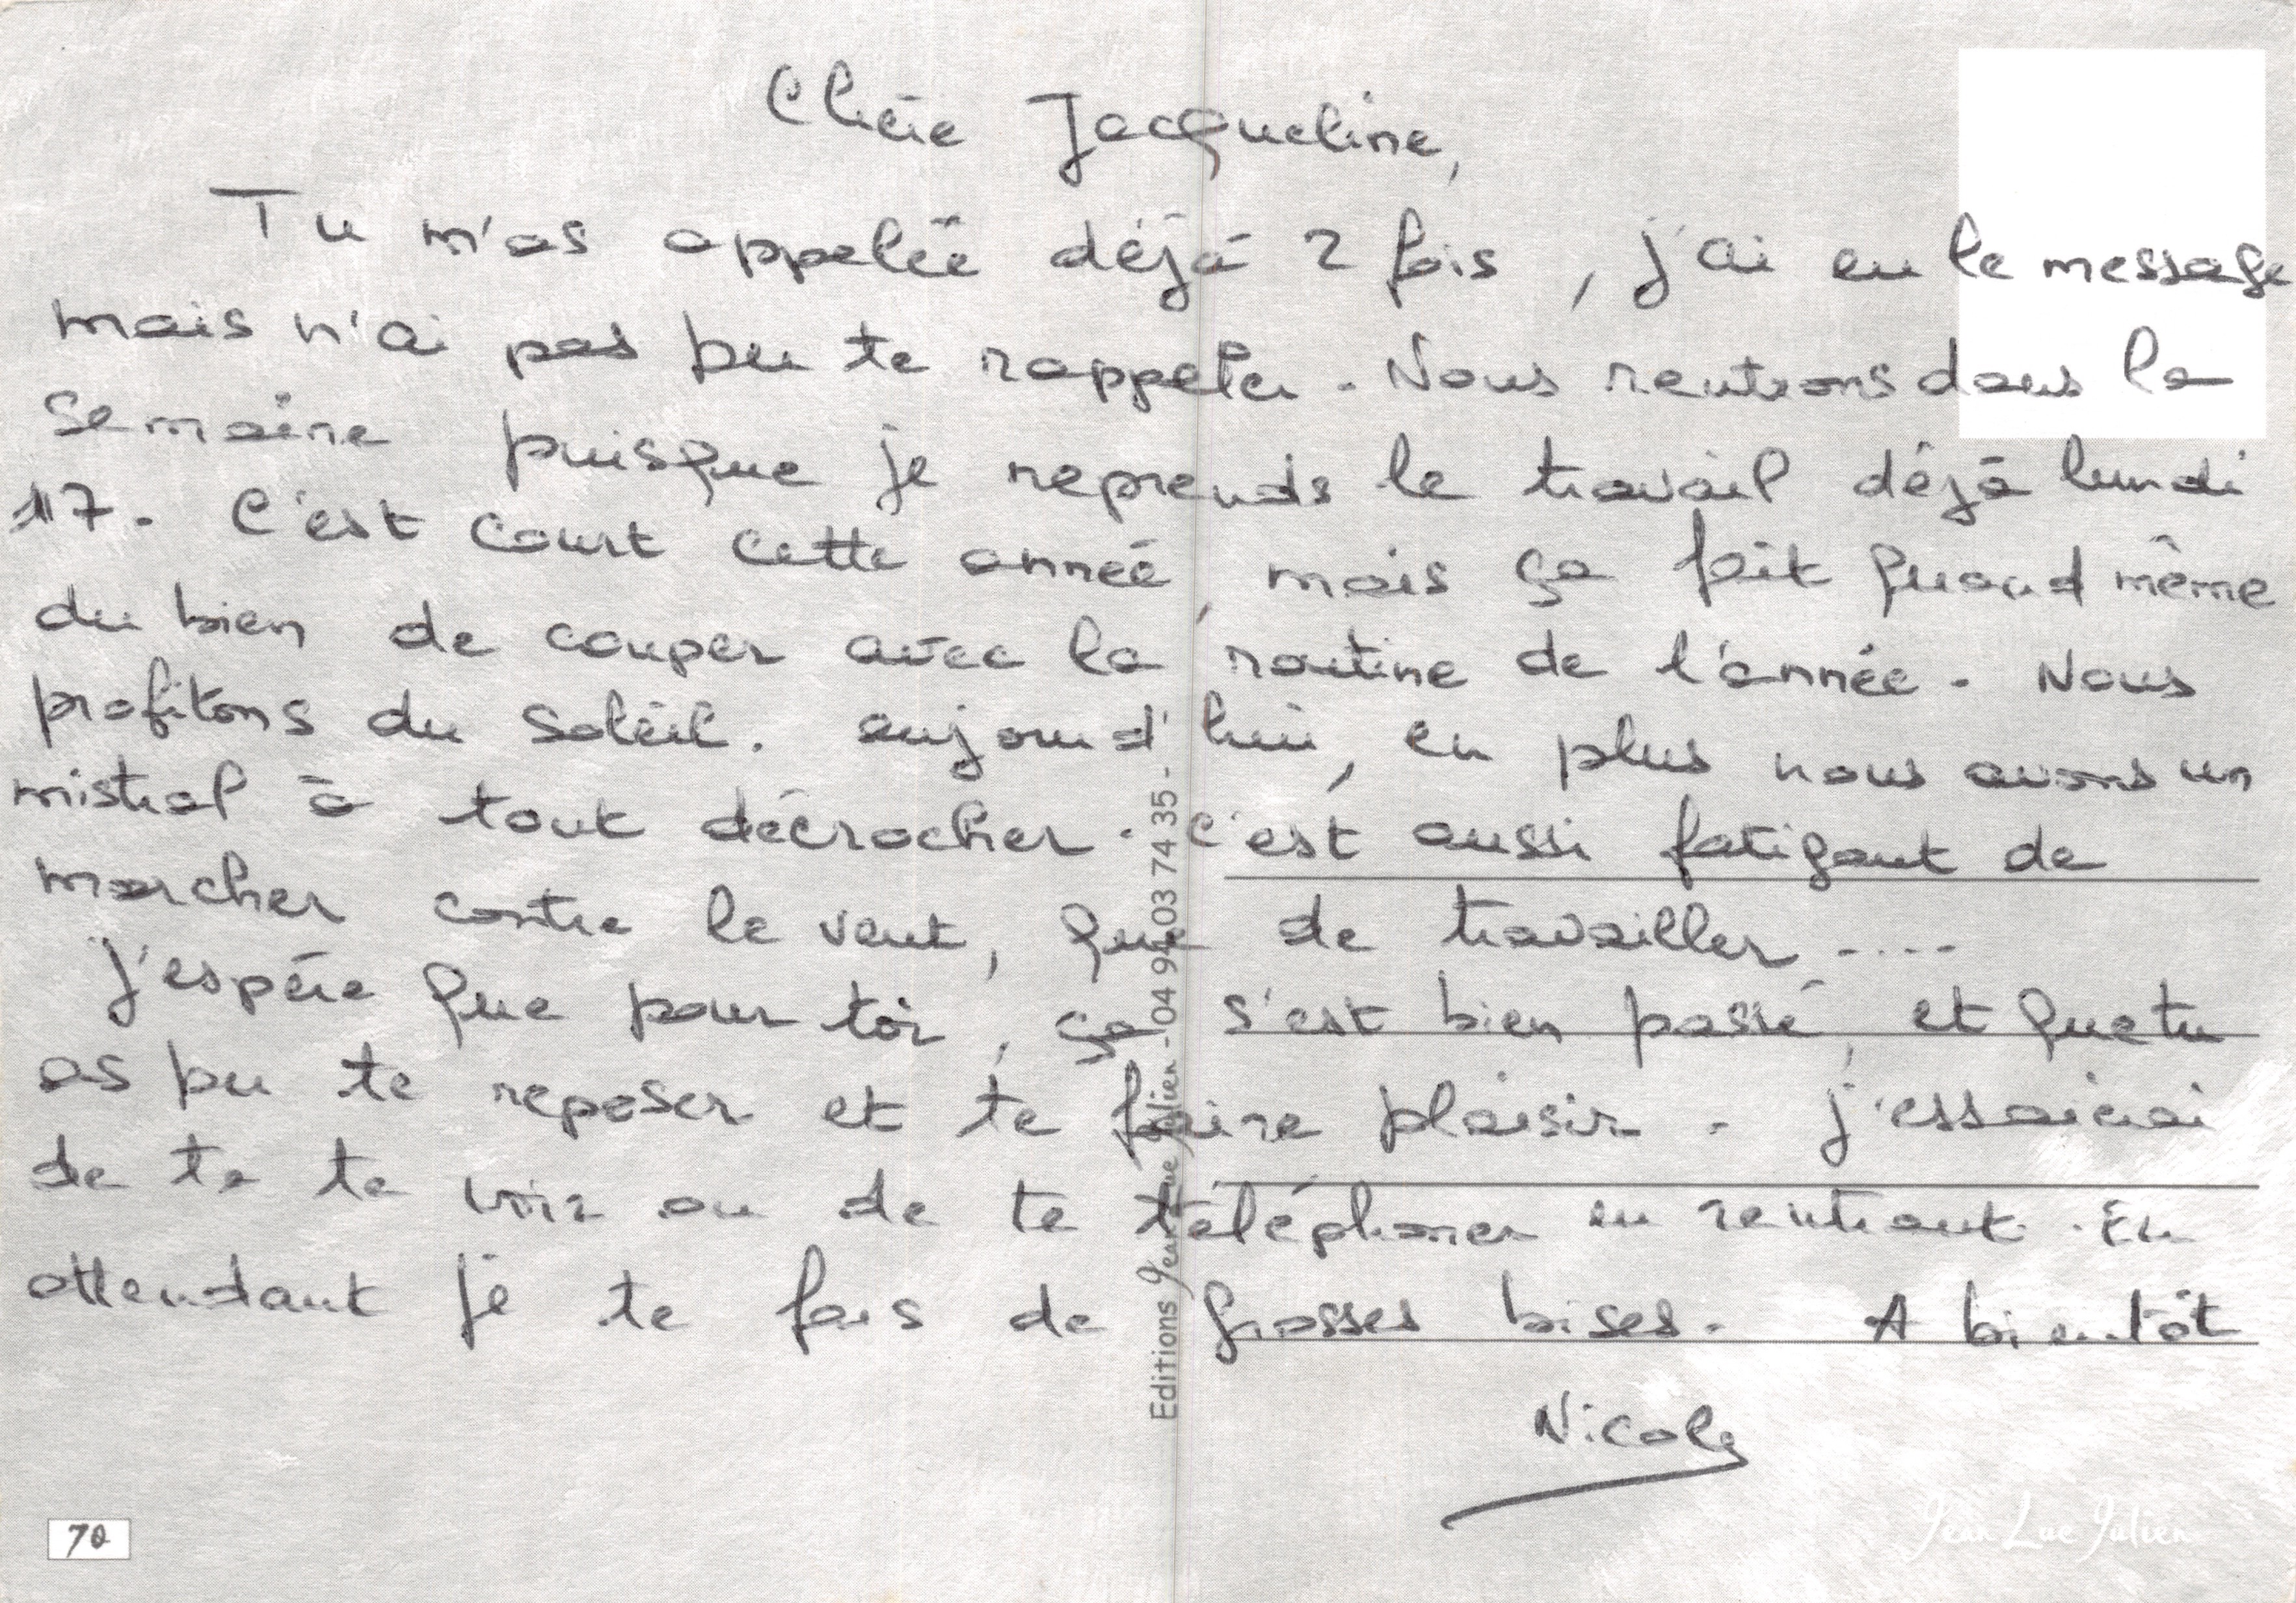 Chère Jacqueline,
Tu m'as appelée déjà 2 fois, j'ai eu le message
mais n'ai pas pu te rappeler. Nous rentrons dans la
semaine puisque je reprends le travail déjà lundi
17. C'est court cette année, mais ça fait quand même
du bien de couper avec la routine de l'année. Nous
profitons du soleil. aujourd'hui, en plus nous avons un
mistral à tout décrocher. c'est aussi fatigant de
marcher contre le vent, que de travailler.....
J'espère que pour toi, ça s'est bien passé, et que tu
as pu te reposer et te faire plaisir. j'essaierai
de te te voir ou de te téléphoner en rentrant. En
attendant je te fais de grosses bises. A bientôt
Nicole
Editions Jean Luc Julien - 04 94 03 74 35 -
70
Jean Luc Julien